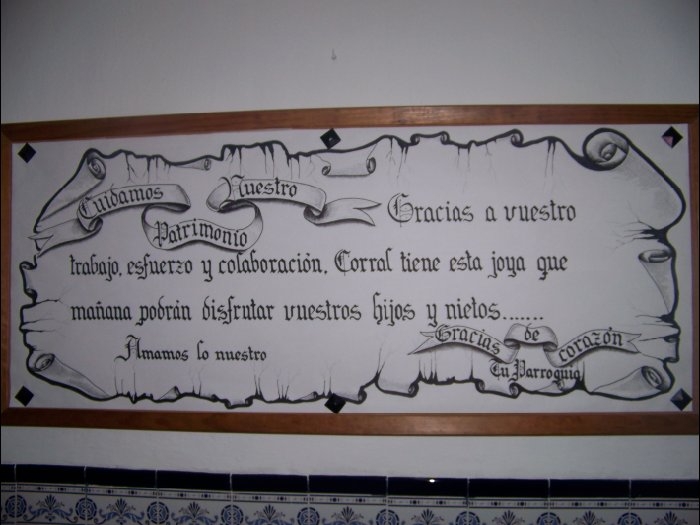 Cuidamos Nuestro
Patrimonio
Gracias a vuestro
trabajo, esfuerzo y colaboración. Corral tiene esta joya que
mañana podrán disfrutar vuestros hijos y nietos.......
Amamos lo nuestro
Gracias de corazón
Tu Parroquia